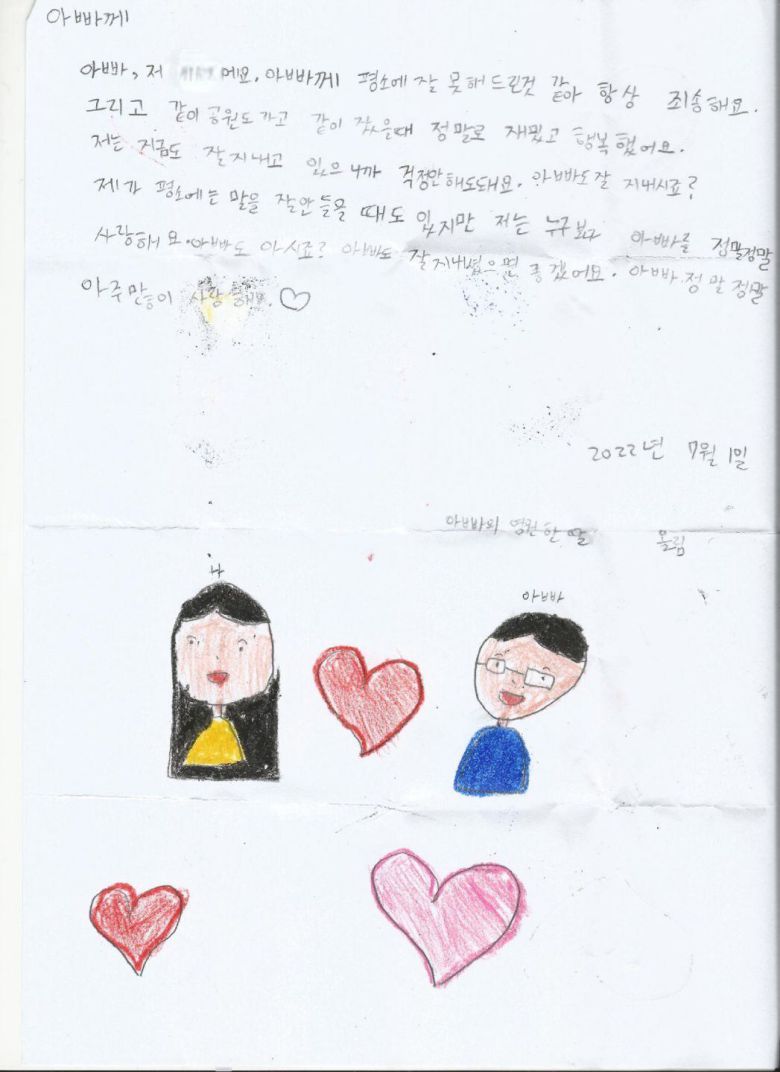 아빠께
아빠, 저 예요. 아빠께 평소에 잘 못해 드린것 같아 항상 죄송해요.
그리고 같이 공원도 가고 같이 잤을때 정말로 재밌고 행복했어요.
저는 지금도 잘 지내고 있으니까 걱정안해도돼요. 아빠도 잘 지내시죠?
제가 평소에는 말을 잘 안 들을 때도 있지만 저는 누구보다 아빠를 정말정말
사랑해요. 아빠도 아시죠? 아빠도 잘 지내셨으면 좋겠어요. 아빠 정말 정말
아주 많이 사랑해요. ♡
2022년 7월 1일
아빠의 영원한 딸 올림
나
아빠